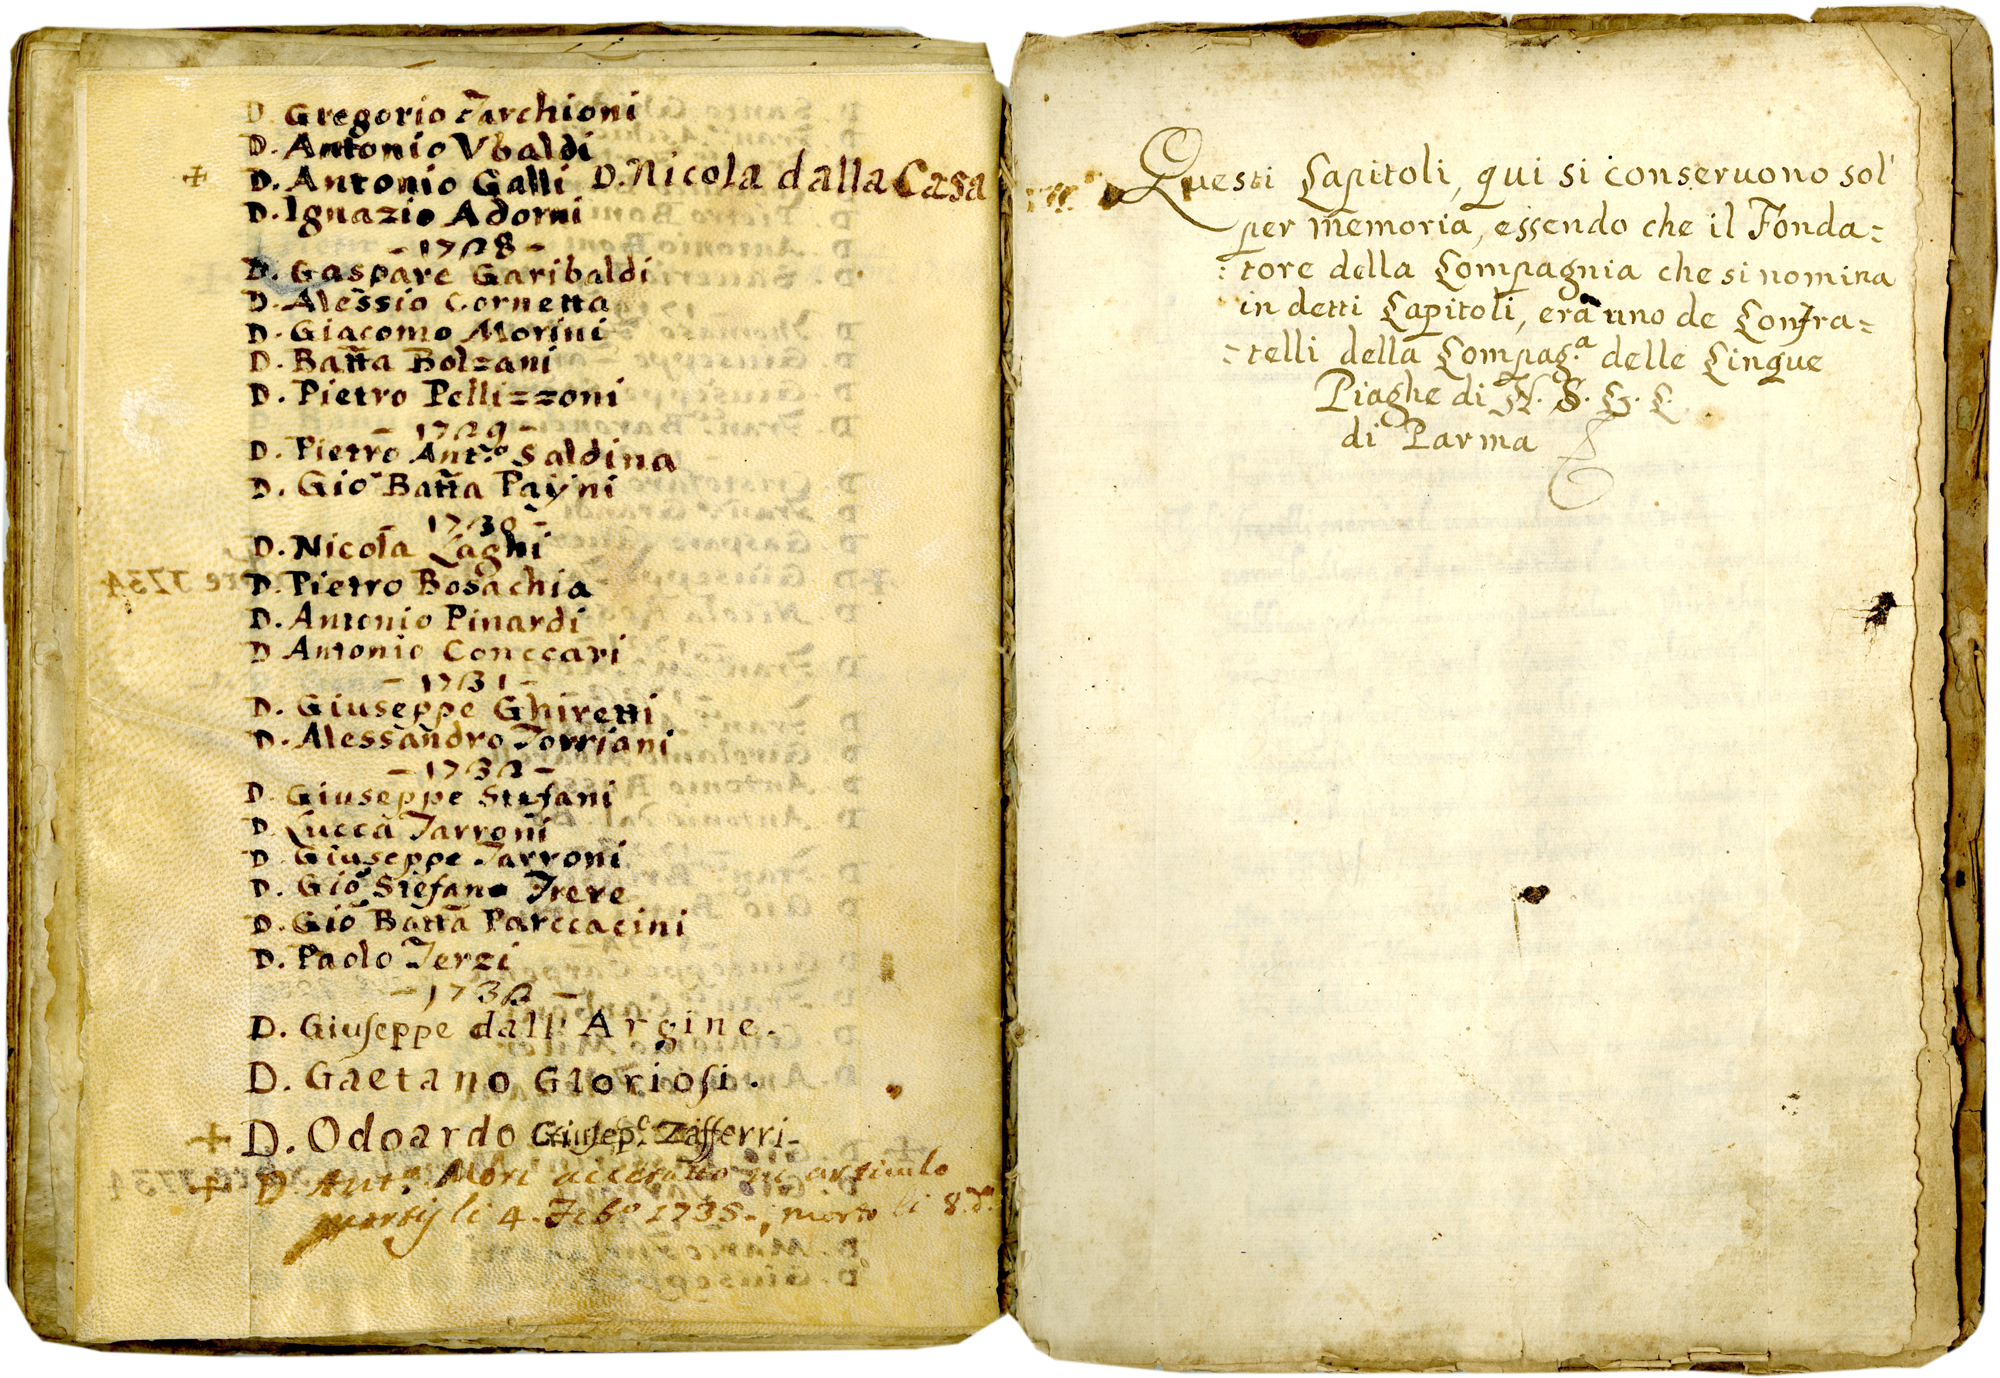 D. Gregorio Tarchioni
D. Antonio Vbaldi
+ D. Antonio Galli D. Nicola dalla Casa
D. Ignazio Adorni
- 1728 -
D. Gaspare Garibaldi
D. Alessio Cornetta
D. Giacomo Morini
D. Batta Bolzani
D. Pietro Pellizzoni
- 1729 -
D. Pietro Ant.º Saldina
D. Gio Batta Payni
1730 -
D. Nicola Laghi
D. Pietro Bosachia
D. Antonio Pinardi
D Antonio Conccari
- 1731 -
D. Giuseppe Ghiretti
D. Alessandro Torriani
- 1732 -
D. Giuseppe Stefani
D. Lucca Tarroni
D. Giuseppe Tarroni
D. Gio Stefano Frere
D. Gio Batta Parccacini
D. Paolo Terzi
- 173 -
D. Giuseppe dall' Argine.
D. Gaetano Gloriosi.
+ D. Odoardo Giusep.e Zafferri
+ D. Ant.º Mori accettato in articulo
mortis li 4. Feb.º 1735., morto li 8. d.º
Questi Capitoli, qui si conseruono sol'
per memoria, essendo che il Fonda=
:tore della Compagnia che si nomina
in detti Capitoli, era uno de Confra=
=telli della Compag.a delle Cinque
Piaghe di N. S. G. C.
di Parma